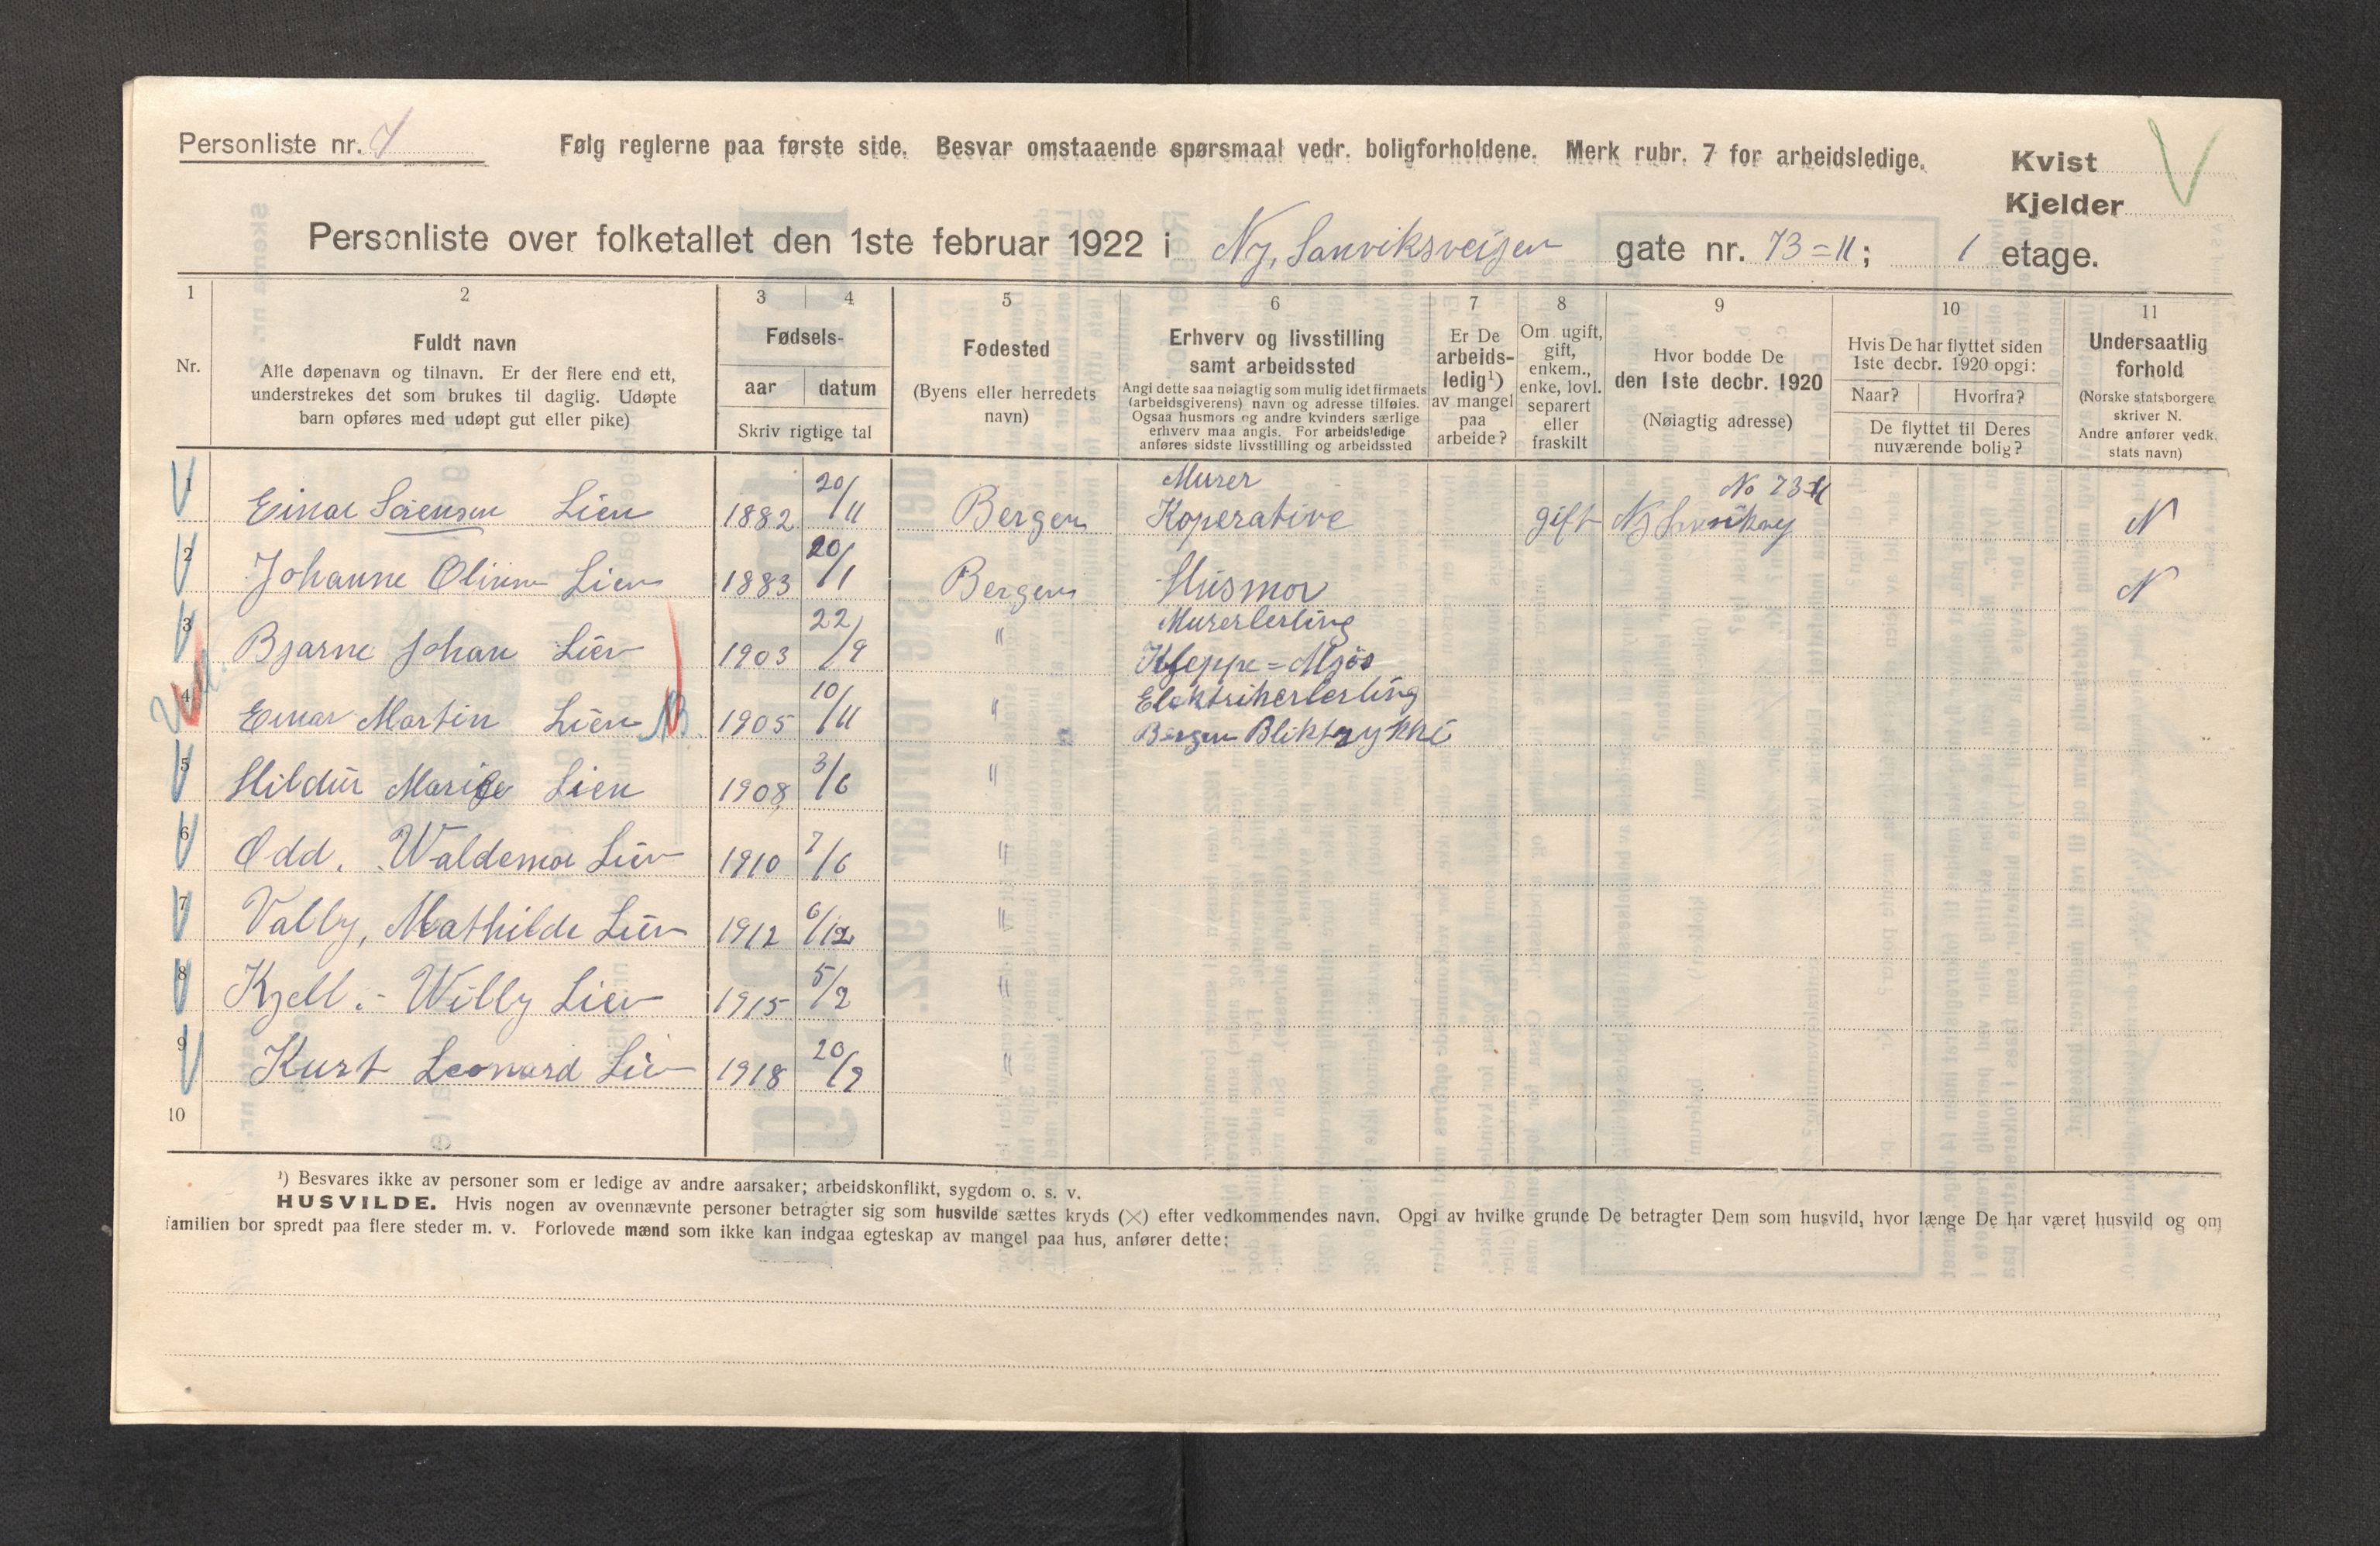 Personliste nr. 7
Følg reglerne paa første side. Besvar omstaaende spørsmaal vedr. boligforholdene. Merk rubr. 7 for arbeidsledige.
Kvist
Kjelder
Personliste over folketallet den 1ste februar 1922 i Ny. Sanviksveien gate nr. 73=II; 1 etage.
1 2 3 4 5 6 7 8 9 10 11
Nr.
Fuldt navn
Alle døpenavn og tilnavn. Er der flere end ett,
understrekes det som brukes til daglig. Udøpte
barn opføres med udøpt gut eller pike)
Fødsels-
aar datum
Skriv rigtige tal
Fødested
(Byens eller herredets
navn)
Erhverv og livsstilling
samt arbeidssted
Angi dette saa nøiagtig som mulig idet firmaets
(arbeidsgiverens) navn og adresse tilføies.
Ogsaa husmors og andre kvinders særlige
erhverv maa angis. For arbeidsledige
anføres sidste livsstilling og arbeidssted
Er De
arbeids-
ledig¹)
av mangel
paa
arbeide?
Om ugift,
gift,
enkem.,
enke, lovl.
separert
eller
fraskilt
Hvor bodde De
den 1ste decbr. 1920
(Nøiagtig adresse)
Hvis De har flyttet siden
1ste decbr. 1920 opgi:
Naar? Hvorfra?
De flyttet til Deres
nuværende bolig?
Undersaatlig
forhold
(Norske statsborgere
skriver N.
Andre anfører vedk.
stats navn)
1 Einar Sørensen Lien 1882 20/11 Bergen Murer Koperative gift No 73 II N
2 Johanne Oline Lien 1883 20/1 Bergen Husmor N
3 Bjarne Johan Lien 1903 22/9 " Murerlerling
Kleppe = Mjøs
4 Einar Martin Lien 1905 10/11 " Elektrikerlerling
Bergen Bliktrykkeri
5 Hildur Marie Lien 1908 3/6 "
6 Odd. Waldemar Lien 1910 7/6 "
7 Vally, Mathilde Lien 1912 6/12 "
8 Kjell.- Willy Lien 1915 5/2 "
9 Kurt Leonard Lien 1918 20/9 "
10
¹) Besvares ikke av personer som er ledige av andre aarsaker; arbeidskonflikt, sygdom o. s. v.
HUSVILDE. Hvis nogen av ovennævnte personer betragter sig som husvilde sættes kryds (×) efter vedkommendes navn. Opgi av hvilke grunde De betragter Dem som husvild, hvor længe De har været husvild og om
familien bor spredt paa flere steder m. v. Forlovede mænd som ikke kan indgaa egteskap av mangel paa hus, anfører dette: